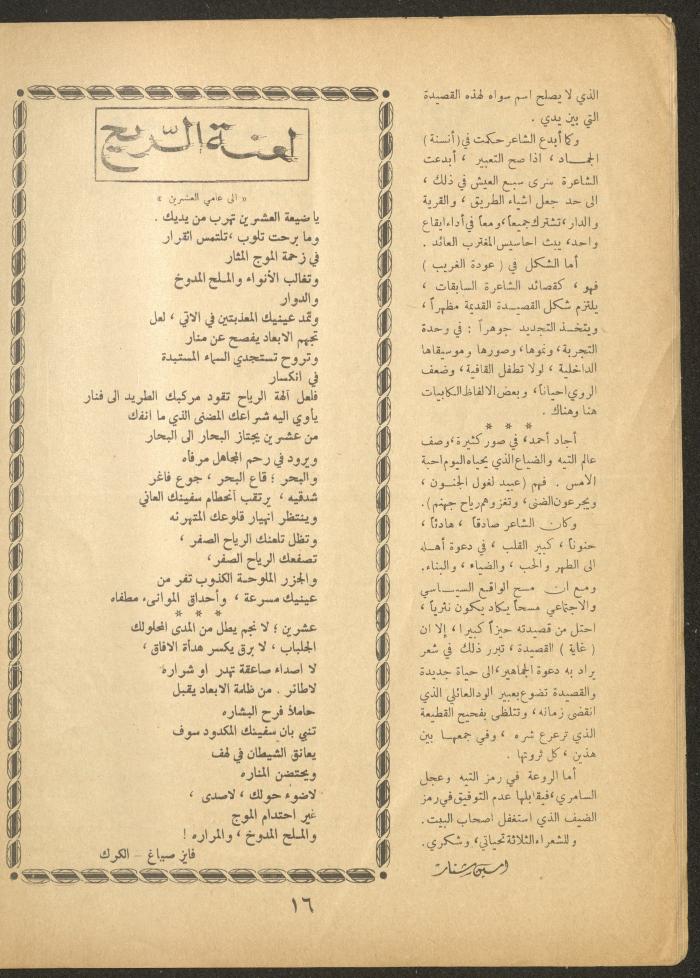 الذي لا يصلح اسم سواه لهذه القصيدة
التي بين يدي .
وكما أبدع الشاعر حكمت في ( أنسنة )
الجمـاد ، اذا صح التعبير ، أبدعت
الشاعرة سرى سبع العيش في ذلك ،
الى حد جعل اشياء الطريق ، والقرية
والدار ، تشترك جميعاً ، ومعاً في أداء ايقاع
واحد ، يبث احاسيس المغترب العائد .
أما الشكل في ( عودة الغريب )
فهو ، كقصائد الشاعرة السابقات ،
يلتزم شكل القصيـدة القديمة مظهراً ،
ويتخـذ التجديد جوهراً : في وحدة
التجربة ، ونموها ، وصورها وموسيقاها
الداخلية ، لولا تطفل القافية ، وضعف
الروي احياناً ، وبعض الالفاظ الكابيات
هنا وهناك .
* * *
أجاد أحمد ، في صور كثيرة ، وصف
عالم التيه والضياع الذي يحياه اليوم احبة
الأمس . فهم ( عبيد لغول الجنـون ،
ويجرعون الضنى ، وتغزوهم رياح جهنم ) .
وكان الشاعر صادقاً ، هادئاً ،
حنوناً ، كبير القلب ، في دعوة أهـله
الى الطهر والحب ، والضياء ، والبناء .
ومـع ان مسـح الواقـع السيـاسي
والاجتماعي مسحاً يكاد يكون نثرياً ،
احتل من قصيدته حيزاً كبيرا ، إلا ان
( غاية ) القصيدة ، تبرر ذلك في شعر
يراد به دعوة الجماهير ، الى حياة جديدة
والقصيدة تضوع بعبير الود العائلي الذي
انقضى زمانه ، وتتلظى بفحيح القطيعة
الذي ترعرع شره ، وفي جمعهـا بين
هذين ، كل ثروتها .
أما الروعة في رمز التيه وعجل
السامري ، فيقابلها عدم التوفيق في رمز
الضيف الذي استغفل اصحاب البيت .
وللشعراء الثلاثة تحياتي ، وشكري .
امين شنار
لعنـة الـريح
« الى عامي العشرين »
يا ضيعة العشرين تهرب من يديك .
وما برحت تلوب ، تلتمس القرار
في زحمة الموج المثار
وتغالب الأنواء والمـلح المدوخ
والدوار
وتمد عينيك المعذبتين في الآتي ، لعل
تجهم الابعاد يفصح عن منار
وتروح تستجدي السماء المستبدة
في انكسار
فلعل آلهة الرياح تقود مركبك الطريد الى فنار
يأوي اليه شراعك المضنى الذي ما انفك
من عشرين يجتاز البحار الى البحار
ويرود في رحم المجاهل مرفاه
والبحر ؛ قاع البحر ، جوع فاغر
شدقيه ، يرتقب انحطام سفينك العاني
وينتظر انهيار قلوعك المتهرئه
وتظل تلعنك الرياح الصفر ،
تصفعك الرياح الصفر ،
والجزر الملوحـة الكذوب تفر من
عينيك مسرعة ، وأحداق الموانىء مطفاه
* * *
عشرين ؛ لا نجم يطل من المدى المحلولك
الجلباب ، لا برق يكسر هدأة الآفاق ،
لا اصداء صاعقة تهدر او شراره
لا طائر . من ظلمة الابعاد يقبل
حاملا فرح البشاره
تنبي بان سفينك المكدود سوف
يعانق الشيطان في لهف
ويحتضن المناره
لا ضوء حولك ، لا صدى ،
غير احتدام الموج
والمـلح المدوخ ، والمراره !
فايز صياغ – الكرك
١٦